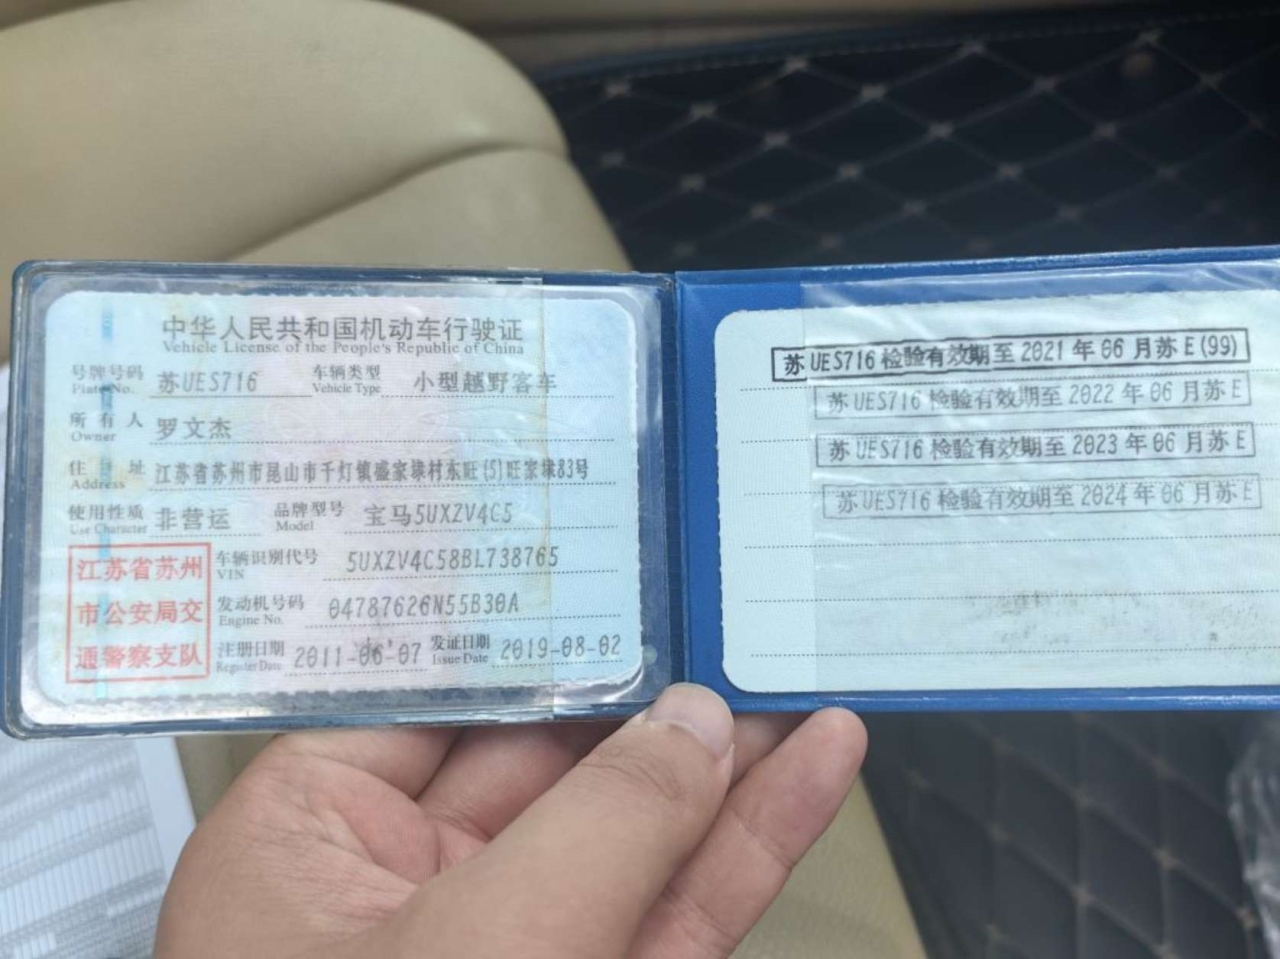 中华人民共和国机动车行驶证
Vehicle License of the People's Republic of China
号牌号码 苏UES716 车辆类型 小型越野客车
Plate No. Vehicle Type
所有人 罗文杰
Owner
住址 江苏省苏州市昆山市千灯镇盛家埭村东旺(5)旺家埭83号
Address
使用性质 非营运 品牌型号 宝马5UXZV4C5
Use Character Model
江苏省苏州市公安局交通警察支队
车辆识别代号 5UXZV4C58BL738765
VIN
发动机号码 04787626N55B30A
Engine No.
注册日期 2011-06-07 发证日期 2019-08-02
Register Date Issue Date
苏UES716检验有效期至2021年06月苏E(99)
苏UES716检验有效期至2022年06月苏E
苏UES716检验有效期至2023年06月苏E
苏UES716检验有效期至2024年06月苏E